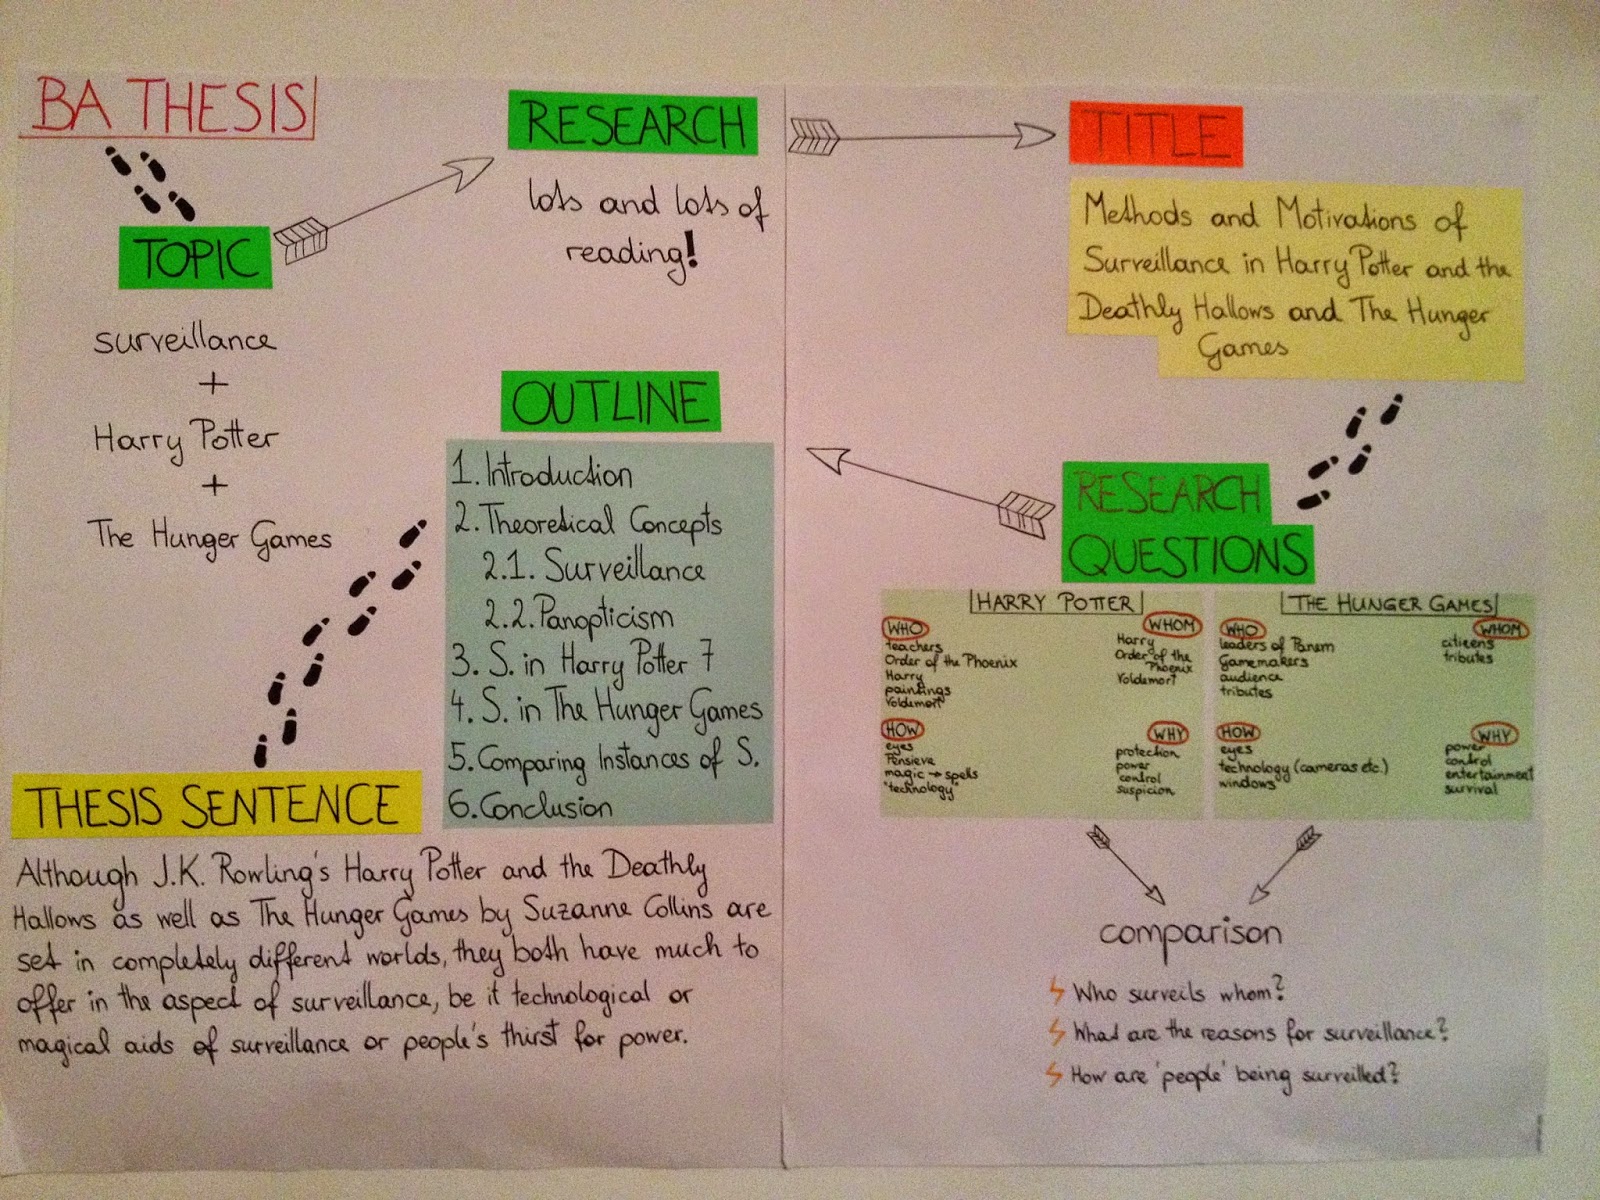 BA THESIS
TOPIC
surveillance
+
Harry Potter
+
The Hunger Games
RESEARCH
lots and lots of
reading!
TITLE
Methods and Motivations of
Surveillance in Harry Potter and the
Deathly Hallows and The Hunger
Games
RESEARCH
QUESTIONS
HARRY POTTER
WHO
teachers
Order of the Phoenix
Harry
paintings
Voldemort
WHOM
Harry
Order of the
Phoenix
Voldemort
HOW
eyes
Pensieve
magic → spells
"technology"
WHY
protection
power
control
suspicion
THE HUNGER GAMES
WHO
leaders of Panem
Gamemakers
audience
tributes
WHOM
citizens
tributes
HOW
eyes
technology (cameras etc.)
windows
WHY
power
control
entertainment
survival
comparison
Who surveils whom?
What are the reasons for surveillance?
How are 'people' being surveilled?
OUTLINE
1. Introduction
2. Theoretical Concepts
2.1. Surveillance
2.2. Panopticism
3. S. in Harry Potter 7
4. S. in The Hunger Games
5. Comparing Instances of S.
6. Conclusion
THESIS SENTENCE
Although J.K. Rowling's Harry Potter and the Deathly
Hallows as well as The Hunger Games by Suzanne Collins are
set in completely different worlds, they both have much to
offer in the aspect of surveillance, be it technological or
magical aids of surveillance or people's thirst for power.